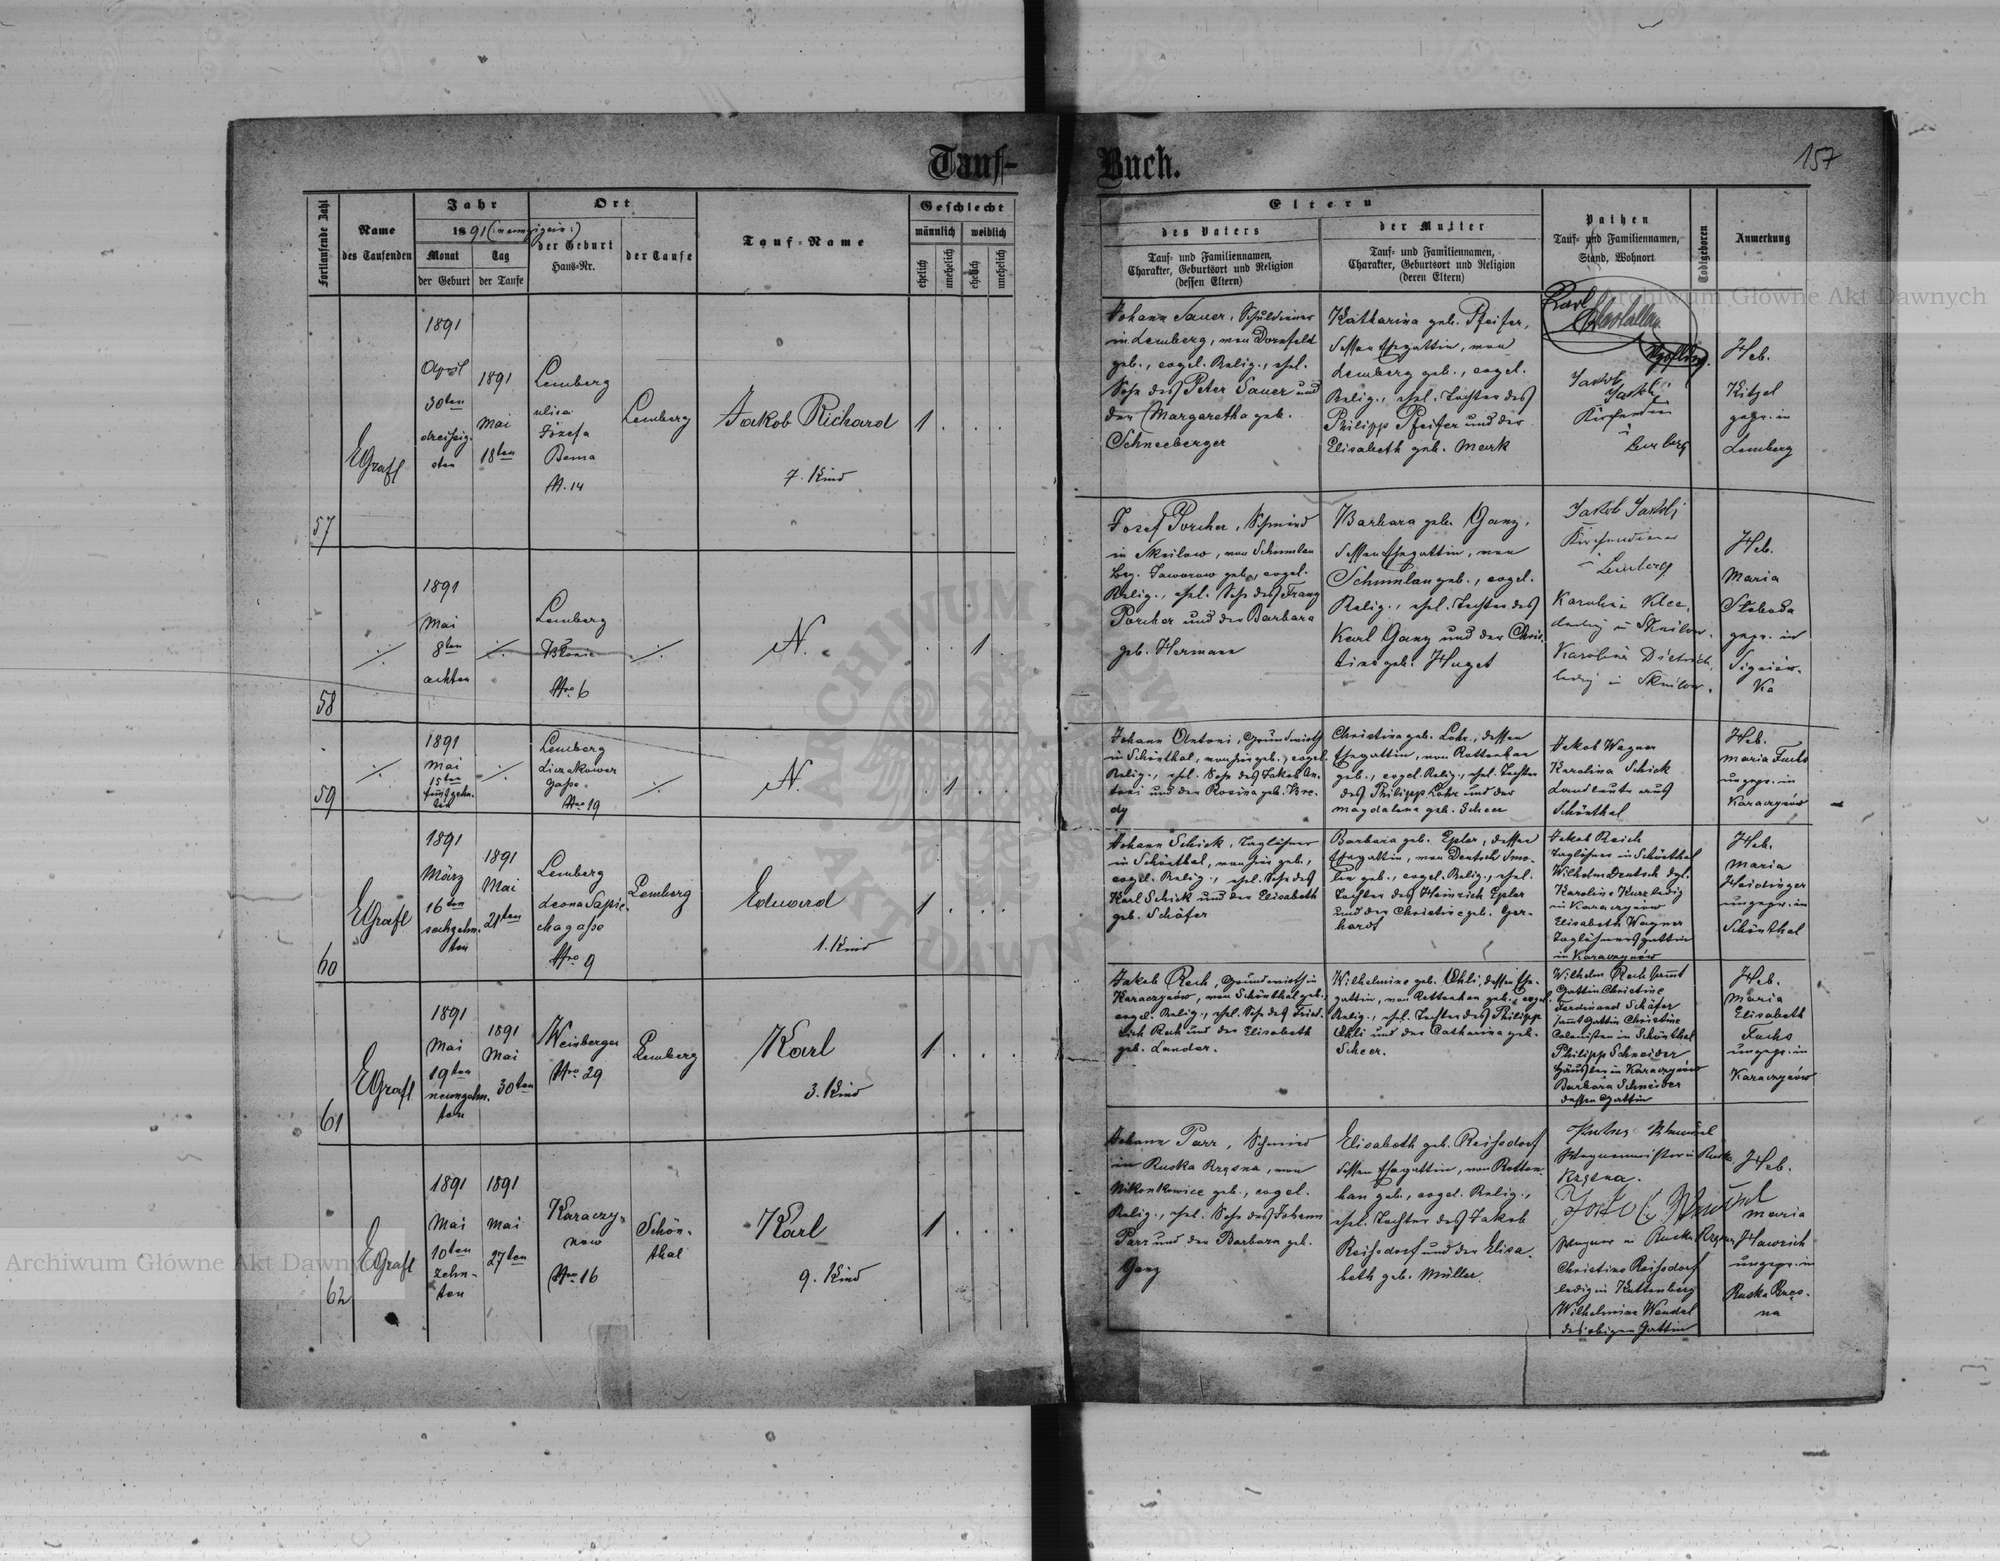 Tauf-
Buch.
157
Fortlaufende Zahl
Name
des Taufenden
Jahr
1891
Monat
Tag
der Geburt
der Taufe
Ort
der Geburt
Haus-Nr.
der Taufe
Tauf-Name
Geschlecht
männlich
weiblich
ehelich
unehelich
ehelich
unehelich
Eltern
des Vaters
Tauf- und Familiennamen,
Charakter, Geburtsort und Religion
(dessen Eltern)
der Mutter
Tauf- und Familiennamen,
Charakter, Geburtsort und Religion
(deren Eltern)
Pathen
Tauf- und Familiennamen,
Stand, Wohnort
Todtgeboren
Anmerkung
57
EGrafl
1891
April
30ten
dreißig-
sten
1891
Mai
18ten
Lemberg
ulica
Józefa
Bema
N. 14
Lemberg
Jakob Richard
7. Kind
1
Johann Sauer, Schuldiener
in Lemberg, von Dornfeld
geb., evgel. Relig., ehel.
Sohn des Peter Sauer und
der Margaretha geb.
Schneeberger
Katharina geb. Pfeifer,
dessen Ehegattin, von
Lemberg geb., evgel.
Relig., ehel. Tochter des
Philipp Pfeifer und der
Elisabeth geb. Mark
Karl
Jakob
Jakobi
Kirchendiener
Lemberg
Heb.
Kitzel
gepr. in
Lemberg
58
1891
Mai
8ten
achten
Lemberg
Błonie
Nro 6
N.
1
Josef Porcher, Schmied
in Sknilow, von Schumlau
Bez. Jaworow geb., evgel.
Relig., ehel. Sohn des Franz
Porcher und der Barbara
geb. Hermann
Barbara geb. Ganz,
dessen Ehegattin, von
Schumlau geb., evgel.
Relig., ehel. Tochter des
Karl Ganz und der Chris-
tine geb. Huget
Jakob Jakobi
Kirchendiener
Lemberg
Karoline Klee,
ledig in Sknilow.
Karoline Dietrich,
ledig in Sknilow.
Heb.
Maria
Słoboda
gepr. in
Signiów-
Ka
59
1891
Mai
15ten
fünfzehn-
ten
Lemberg
Liczakower
gasse
Nro 19
N.
1
Johann Antoni, Grundwirth
in Schönthal, von hier geb., evgel.
Relig., ehel. Sohn des Jakob An-
toni und der Rosina geb. Bre-
dy
Christine geb. Lohr, dessen
Ehegattin, von Rottenhan
geb., evgel. Relig., ehel. Tochter
des Philipp Lohr und der
Magdalena geb. Scheer
Jakob Wagner
Karolina Schick
Landleute aus
Schönthal
Heb.
Maria Fuchs
ungepr. in
Karaczynów
60
EGrafl
1891
März
16ten
sechzehn-
ten
1891
Mai
21ten
Lemberg
Leona Sapie-
chagasse
Nro 9
Lemberg
Eduard
1. Kind
1
Johann Schick, Taglöhner
in Schönthal, von hier geb.,
evgel. Relig., ehel. Sohn des
Karl Schick und der Elisabeth
geb. Schäfer
Barbara geb. Epler, dessen
Ehegattin, von Deutsch Smo-
lin geb., evgel. Relig., ehel.
Tochter des Heinrich Epler
und der Christine geb. Ger-
hard
Jakob Reich
Taglöhner in Schönthal
Wilhelm Deutsch dgl.
Karoline Kurz ledig
in Karaczynów
Elisabeth Wagner
Taglöhnersgattin
in Karaczynów
Heb.
Maria
Heidinger
ungepr. in
Schönthal
61
EGrafl
1891
Mai
19ten
neunzehn-
ten
1891
Mai
30ten
Weinberge
Nro 29
Lemberg
Karl
3. Kind
1
Jakob Rech, Grundwirth in
Karaczynów, von Schönthal geb.,
evgel. Relig., ehel. Sohn des Fried-
rich Rech und der Elisabeth
geb. Lander.
Wilhelmine geb. Ohli, dessen Ehe-
gattin, von Rottenhan geb., evgel.
Relig., ehel. Tochter des Philipp
Ohli und der Catharina geb.
Scheer.
Wilhelm Rech sammt
Gattin Christine
Ferdinand Schäfer
sammt Gattin Christine
Colonisten in Schönthal
Philipp Schneider
Häusler in Karaczynów
Barbara Schneider
dessen Gattin
Heb.
Maria
Elisabeth
Fuchs
ungepr. in
Karaczynów
62
EGrafl
1891
Mai
10ten
zehn-
ten
1891
Mai
27ten
Karaczy-
now
Nro 16
Schön-
thal
Karl
9. Kind
1
Johann Parr, Schmied
in Ruska Rzęsna, von
Nikonkowice geb., evgel.
Relig., ehel. Sohn des Johann
Parr und der Barbara geb.
Ganz
Elisabeth geb. Reissdorf
dessen Ehegattin, von Rotten-
han geb., evgel. Relig.,
ehel. Tochter des Jakob
Reissdorf und der Elisa-
beth geb. Müller
Wagnermeister in Ruska
Rzęsna.
Wagner in Ruska Rzęsna
Christine Reissdorf
ledig in Kuttenberg
Wilhelmine Wendel
des obigen Gattin
Heb.
Maria
Hawrich
ungepr. in
Ruska Rzęs-
na
Archiwum Główne Akt Dawnych
Archiwum Główne Akt Dawnych
ARCHIWUM GŁÓWNE AKT DAWNYCH